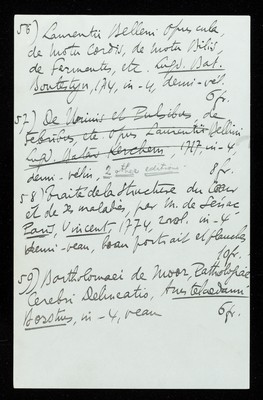 56) Laurentii Bellini Opuscula,
de Motu Cordis, de Motu Bilis,
de Fermentis, etc. Lugd. Bat.
Boutestyn, 174, in-4, demi-vél
6 fr.
57) De Urinis et Pulsibus, de
Febribus, etc Opus Laurentii Bellini
Lugd Batav Kerchem 1717, in-4
demi-vélin, 2 other editions
8 fr.
58) Traité de la Structure du Coeur
et de ses maladies, par M. de Sénac
Paris, Vincent, 1774, 2 vol. in-4
demi-veau, beau portrait et planches
10 fr.
59) Bartholomaei de Moor, Pathologiae
Cerebri Delineatio, Amstelaedami
in-4, veau
6 fr.